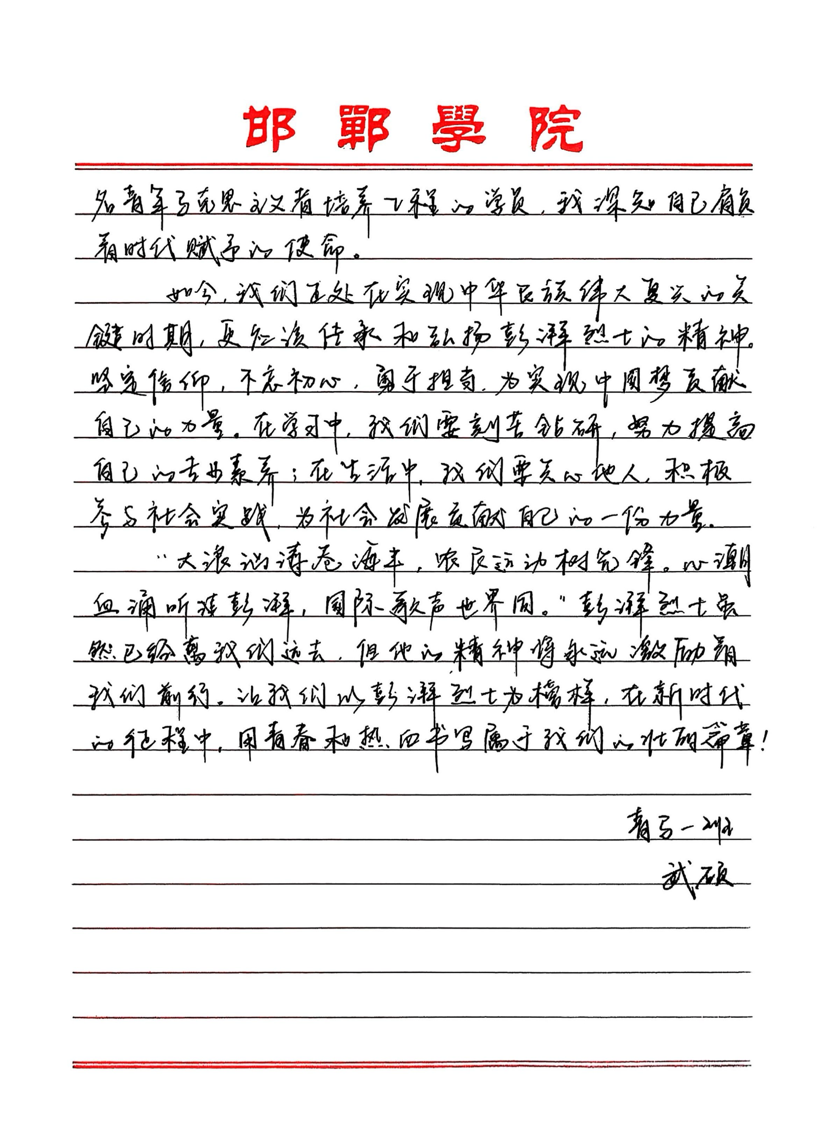 邯鄲學院
名青年马克思主义者培养工程的学员，我深知自己肩负
着时代赋予的使命。
如今，我们正处在实现中华民族伟大复兴的关
键时期，更应该传承和弘扬彭湃烈士的精神。
坚定信仰，不忘初心，勇于担当，为实现中国梦贡献
自己的力量。在学习中，我们要刻苦钻研，努力提高
自己的专业素养；在生活中，我们要关心他人，积极
参与社会实践，为社会发展贡献自己的一份力量。
“大浪汹涛卷海丰，农民运动树先锋。心潮
血涌听涛彭湃，国际歌声世界同。”彭湃烈士虽
然已经离我们远去，但他的精神将永远激励着
我们前行。让我们以彭湃烈士为榜样，在新时代
的征程中，用青春和热血书写属于我们的壮丽篇章！
青马一班
武硕